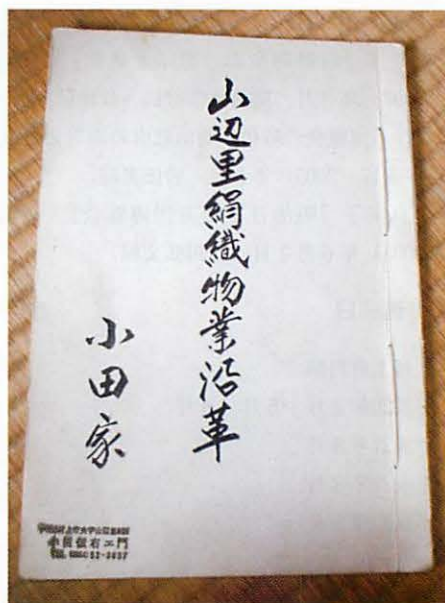 山辺里絹織物業沿革
小田家